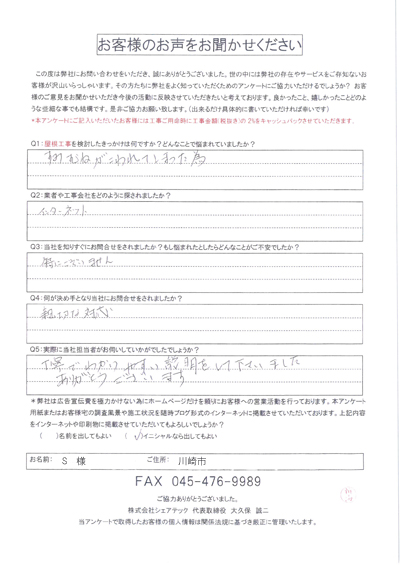 お客様のお声をお聞かせください
この度は弊社にお問い合わせをいただき、誠にありがとうございました。世の中には弊社の存在やサービスをご存知ないお
客様が沢山いらっしゃいます。その方たちに弊社をよく知っていただくためのアンケートにご協力いただけるでしょうか？ お客
様のご意見をお聞かせいただき今後の活動に反映させていただきたいと考えております。良かったこと、嬉しかったことどのよ
うな些細な事でも結構です。是非ご協力お願い致します。（出来るだけ具体的に書いていただければ幸いです）
*本アンケートにご記入いただいたお客様には工事ご用命時に工事金額(税抜き)の2%をキャッシュバックさせていただきます。
Q1:屋根工事を検討したきっかけは何ですか？どんなことで悩まれていましたか？
こわれてしまった為
Q2:業者や工事会社をどのように探されましたか？
インターネット
Q3:当社を知りすぐにお問合せをされましたか？もし悩まれたとしたらどんなことがご不安でしたか？
特にございません
Q4:何が決め手となり当社にお問合せをされましたか？
親切な対応
Q5:実際に当社担当者がお伺いしていかがでしたでしょうか？
丁寧でわかりやすい説明をして下さいました
ありがとうございます
*弊社は広告宣伝費を極力かけない為にホームページだけを頼りにお客様への営業活動を行っております。本アンケート
用紙またはお客様宅の調査風景や施工状況を随時ブログ形式のインターネットに掲載させていただいております。上記内容
をインターネットや印刷物に掲載させていただいてもよろしいでしょうか？
( )名前を出してもよい (✓)イニシャルなら出してもよい
お名前: S 様 ご住所: 川崎市
FAX 045-476-9989
ご協力ありがとうございました。
株式会社シェアテック 代表取締役 大久保 誠二
当アンケートで取得したお客様の個人情報は関係法規に基づき厳正に管理いたします。